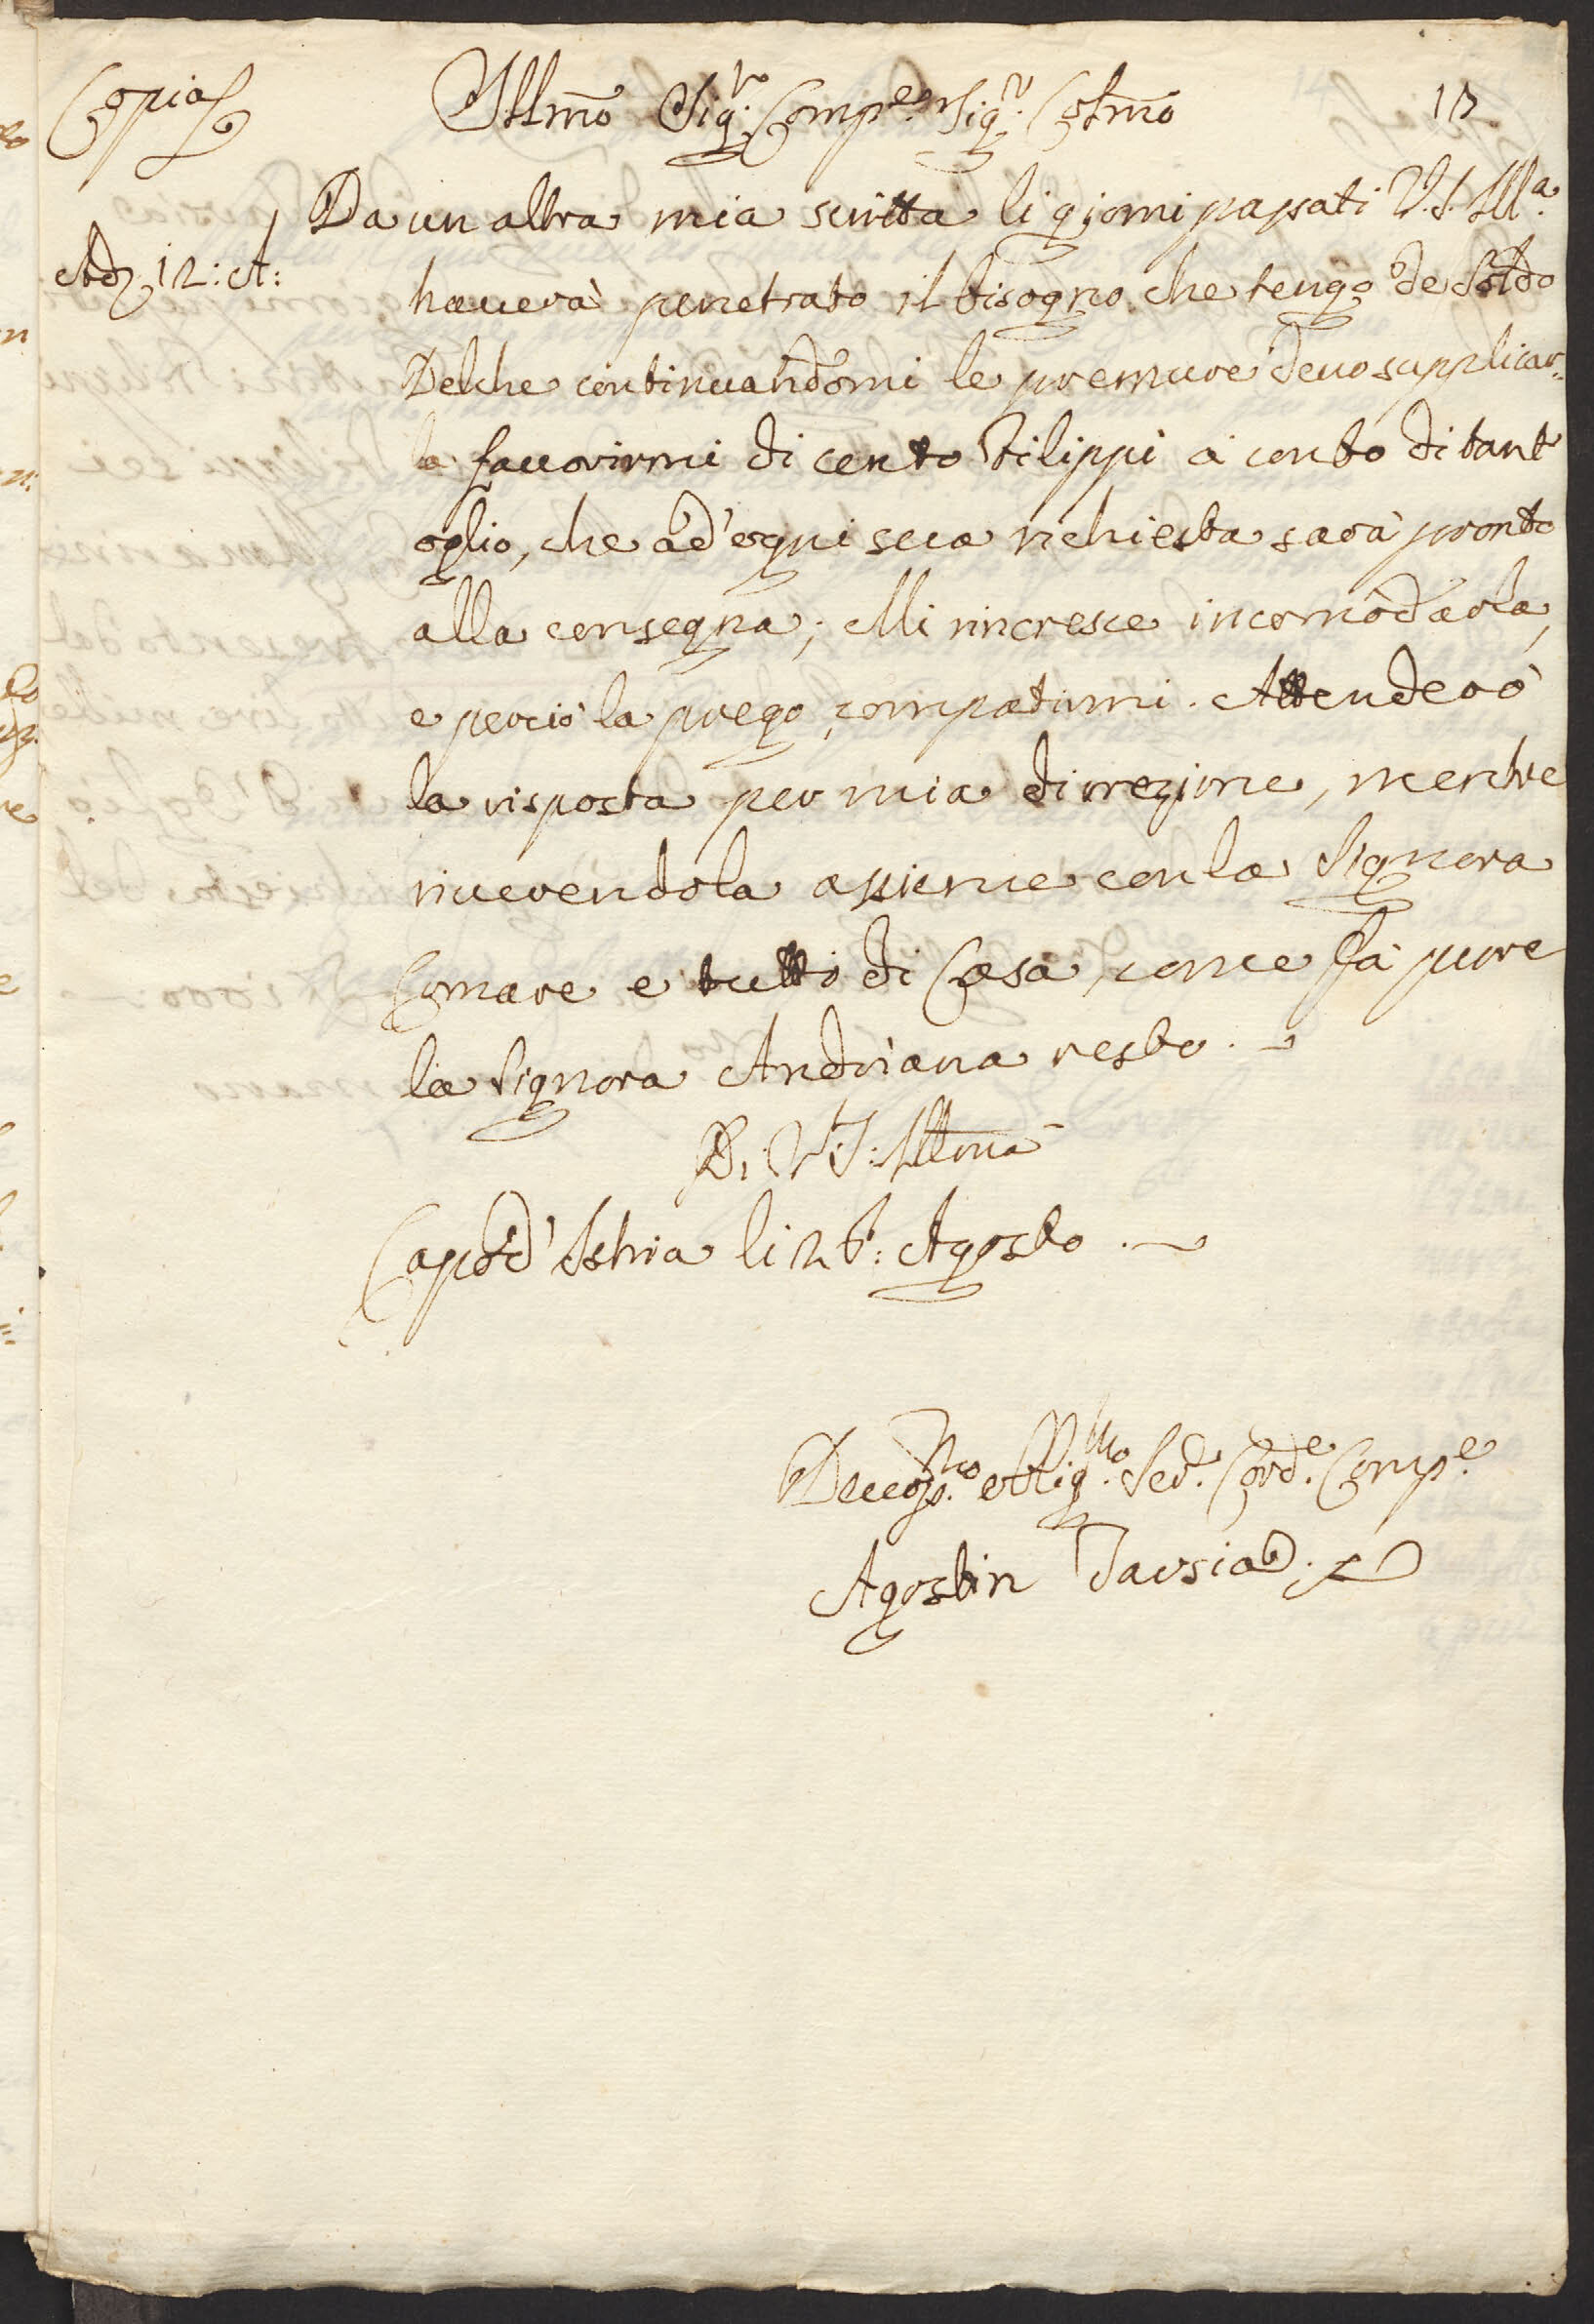 Copia
Illmo Sigr: Compe Sigr: Colmo
13
Da un altra mia scritta li giorni passati V.S. Illa.
Ad 12: A:
haverà penetrato il bisogno che tengo de soldo
Delche continuandomi le premure devo supplicar-
la favorirmi di cento Filippi à conto di tant
oglio, che ad' ogni sua richiesta sarà pronto
alla consegna; Mi rincresce incomodarla,
e perciò la prego compatirmi. Attenderò
la risposta per mia direzione, mentre
riverendola assieme con la Signora
Comare e tutti di Casa, come fà pure
la Signora Andriana resto.
D. V: S: Illma
Capod' Istria li 26: Agosto.
Devoss.mo obblig.mo Ser. Cord.e Comp.e
Agostin Tarsia.